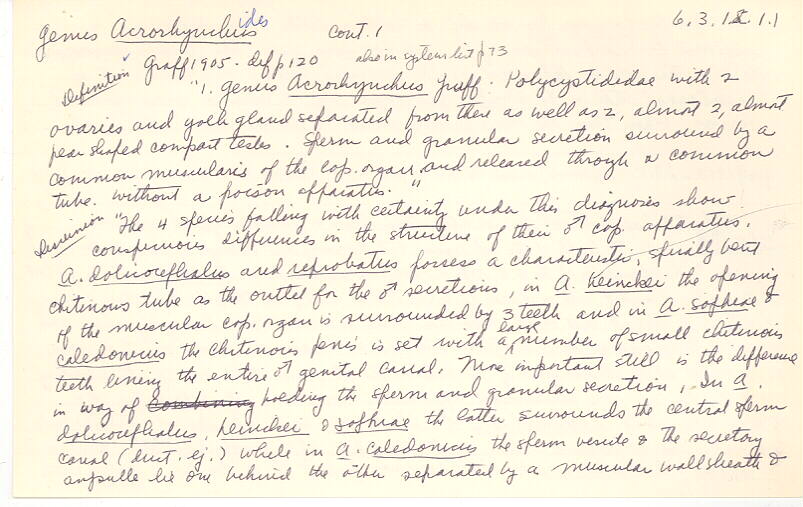 Genus Acrorhynchus ides Cont. 1 6.3.18.1.1
Definition Graff 1905 - def p 120 also in systems list p 73
"1. Genus Acrorhynchus Graff. Polycystididae with 2
ovaries and yolk gland separated from them as well as 2, almost 2, almost
pear shaped compact testes. Sperm and granular secretion surround by a
common muscularis of the cop. organ and released through a common
tube. without a poison apparatus."
Discussion "The 4 species falling with certainty under this diagnosis show
conspicuous differences in the structure of their ♂ cop. apparatus.
A. dolicocephalus and reprobatus possess a characteristic, spirally bent
chitenous tube as the outlet for the ♂ secretions, in A. heinckei the opening
of the muscular cop. organ is surrounded by 3 teeth and in A. sophiae &
caledonicus the chitenois penis is set with a large number of small chitenois
teeth lining the entire ♂ genital canal. More important still is the difference
in way of Combining holding the sperm and granular secretion. In A.
dolicocephalus, heinckei & sophiae the latter surrounds the central sperm
canal (duct. ej.) while in A. caledonicus the sperm vesicle & the secretory
ampulle lie one behind the other separated by a muscular wall sheath &